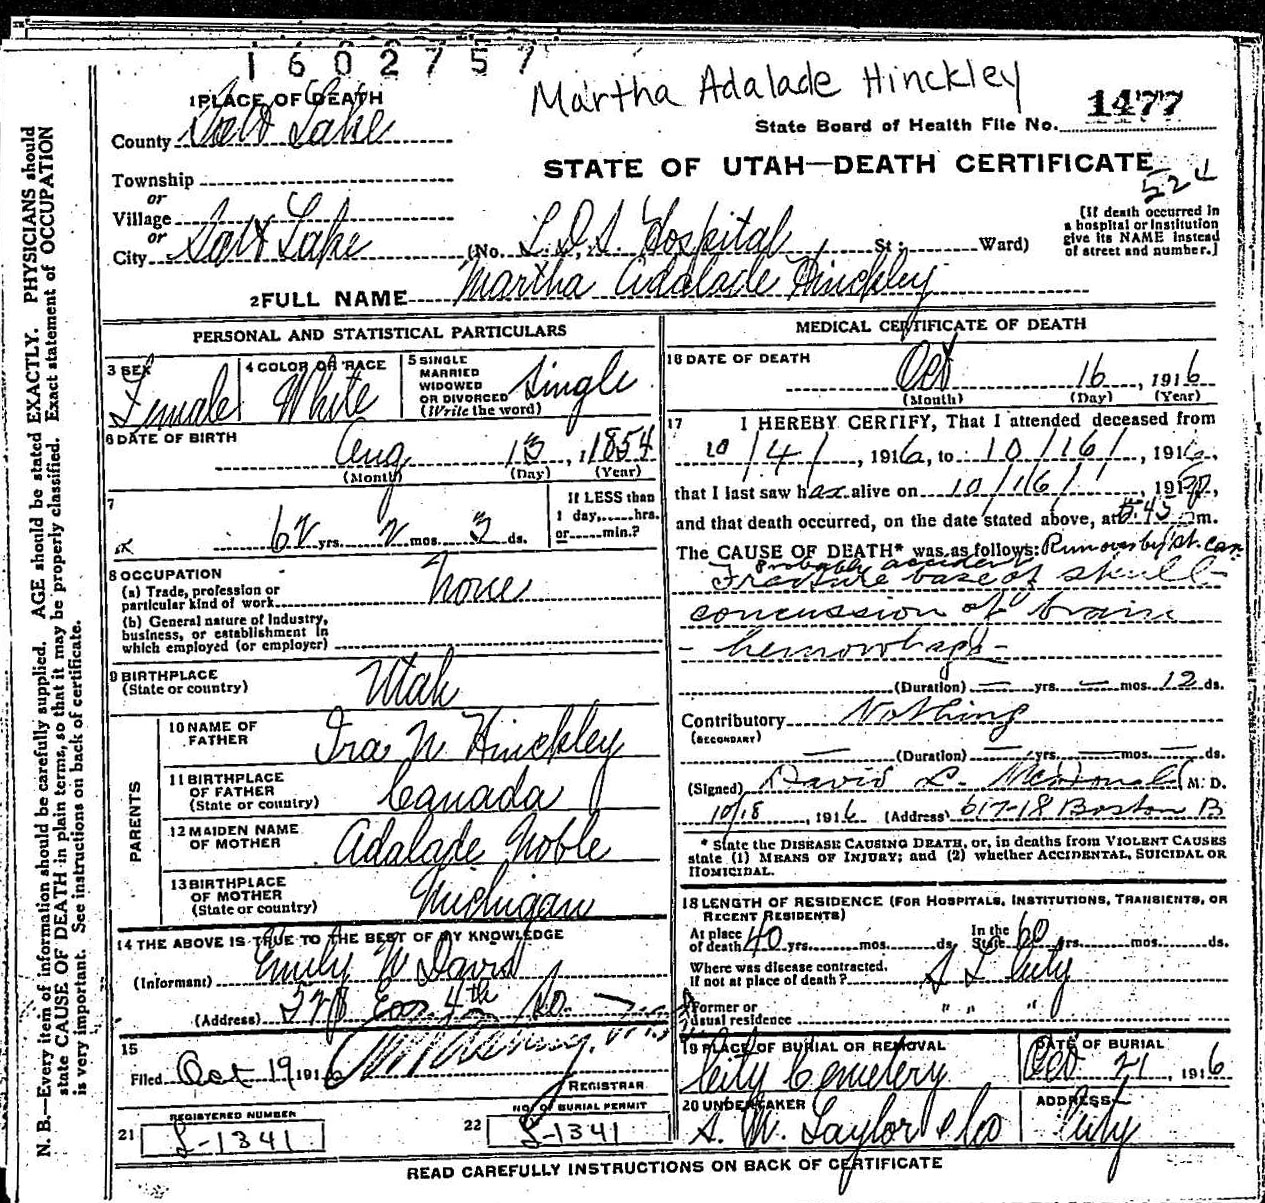 1602757
Martha Adalade Hinckley
1 PLACE OF DEATH
1477
County Salt Lake
State Board of Health File No.
Township
STATE OF UTAH—DEATH CERTIFICATE
or
Village
or
City Salt Lake (No. L.D.S. Hospital St; Ward)
(If death occurred in a hospital or institution give its NAME instead of street and number.)
2 FULL NAME Martha Adalade Hinckley
PERSONAL AND STATISTICAL PARTICULARS
3 SEX Female
4 COLOR OR RACE White
5 SINGLE MARRIED WIDOWED OR DIVORCED (Write the word) Single
6 DATE OF BIRTH
Aug 13, 1854
(Month) (Day) (Year)
7
62 yrs. 2 mos. 3 ds.
If LESS than 1 day, hrs. or min.?
8 OCCUPATION
(a) Trade, profession or particular kind of work None
(b) General nature of industry, business, or establishment in which employed (or employer)
9 BIRTHPLACE
(State or country) Utah
PARENTS
10 NAME OF FATHER Ira N Hinckley
11 BIRTHPLACE OF FATHER (State or country) Canada
12 MAIDEN NAME OF MOTHER Adalade Noble
13 BIRTHPLACE OF MOTHER (State or country) Michigan
14 THE ABOVE IS TRUE TO THE BEST OF MY KNOWLEDGE
(Informant) Emily W David
(Address) 4th So.
15
Filed Oct 19 1916
REGISTRAR
REGISTERED NUMBER
21 L-1341
NO. OF BURIAL PERMIT
22 L-1341
MEDICAL CERTIFICATE OF DEATH
16 DATE OF DEATH
Oct 16, 1916
(Month) (Day) (Year)
17 I HEREBY CERTIFY, That I attended deceased from
10/4/, 1916, to 10/16/, 1916,
that I last saw h alive on 10/16/, 191,
and that death occurred, on the date stated above, at 5.45 m.
The CAUSE OF DEATH* was as follows: Run over by st. car
Probably accident
Fracture base of skull
concussion of brain
- hemorrhage -
(Duration) — yrs. — mos. 12 ds.
Contributory Nothing
(SECONDARY)
— (Duration) — yrs. — mos. — ds.
(Signed) David L. McDonald M. D.
10/18, 1916 (Address) 617-18 Boston B
* State the DISEASE CAUSING DEATH, or, in deaths from VIOLENT CAUSES
state (1) MEANS OF INJURY; and (2) whether ACCIDENTAL, SUICIDAL OR
HOMICIDAL.
18 LENGTH OF RESIDENCE (FOR HOSPITALS, INSTITUTIONS, TRANSIENTS, OR
RECENT RESIDENTS)
At place of death 40 yrs. mos. ds. In the State 60 yrs. mos. ds.
Where was disease contracted, If not at place of death? S L City
Former or usual residence " " "
19 PLACE OF BURIAL OR REMOVAL City Cemetery
DATE OF BURIAL Oct 21, 1916
20 UNDERTAKER S. M. Taylor & Co
ADDRESS City
READ CAREFULLY INSTRUCTIONS ON BACK OF CERTIFICATE
N. B.—Every item of information should be carefully supplied. AGE should be stated EXACTLY. PHYSICIANS should
state CAUSE OF DEATH in plain terms, so that it may be properly classified. Exact statement of OCCUPATION
is very important. See instructions on back of certificate.